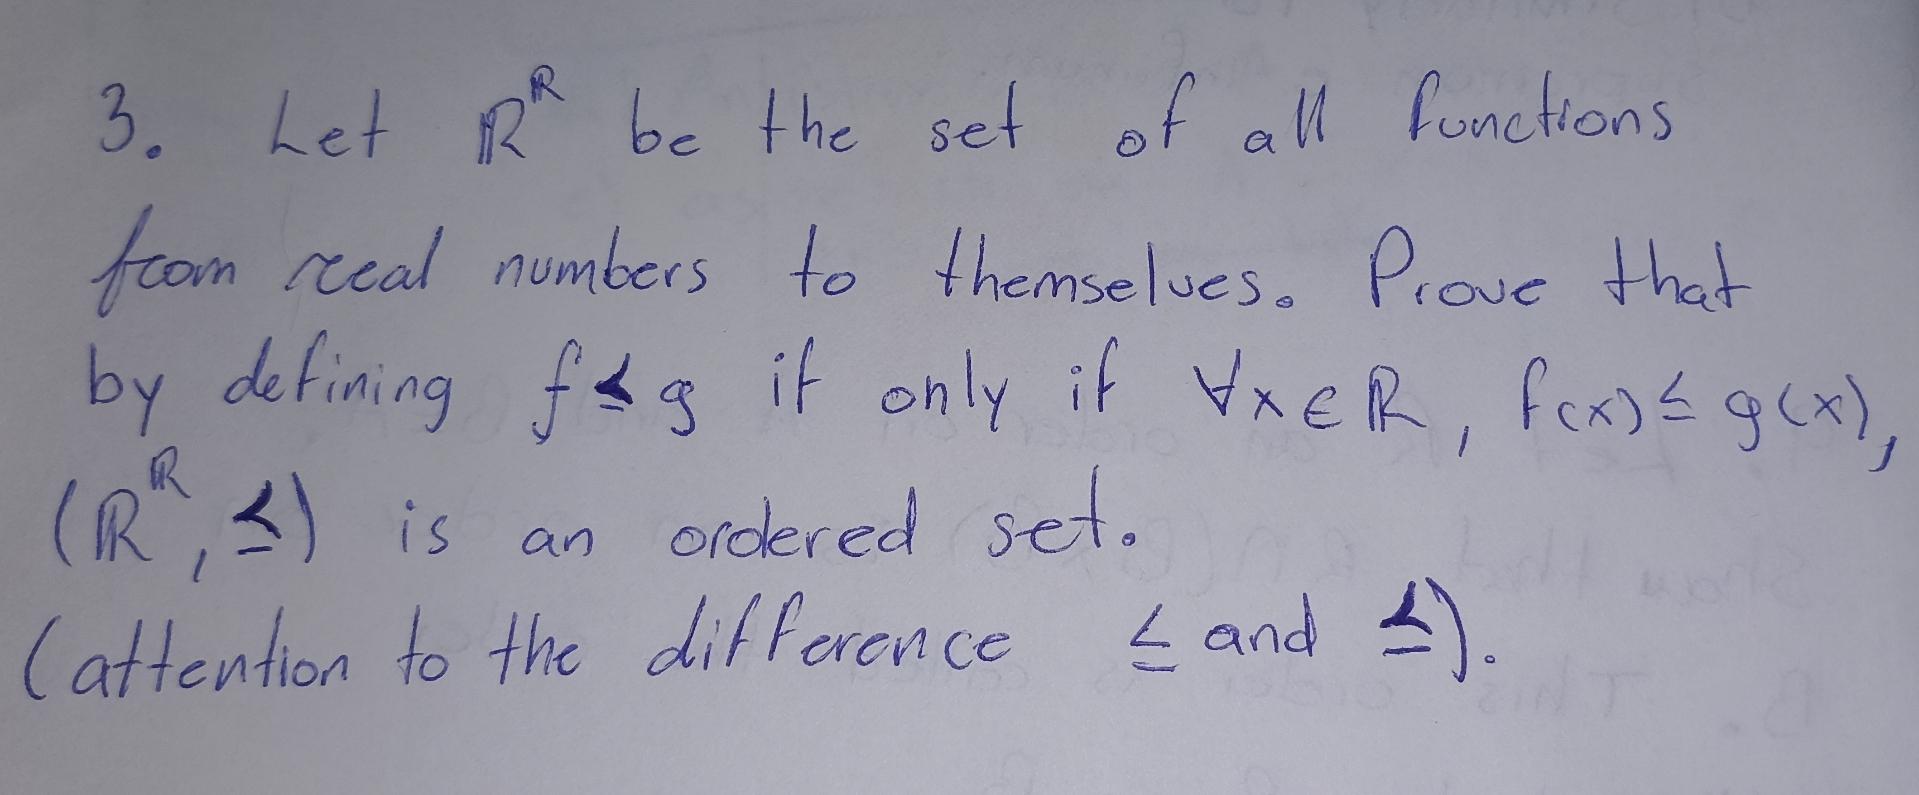 3. Let ℝ^ℝ be the set of all functions
from real numbers to themselves. Prove that
by defining f ⪯ g if only if ∀x∈ℝ, f(x) ≤ g(x),
(ℝ^ℝ, ⪯) is an ordered set.
(attention to the difference ≤ and ⪯).